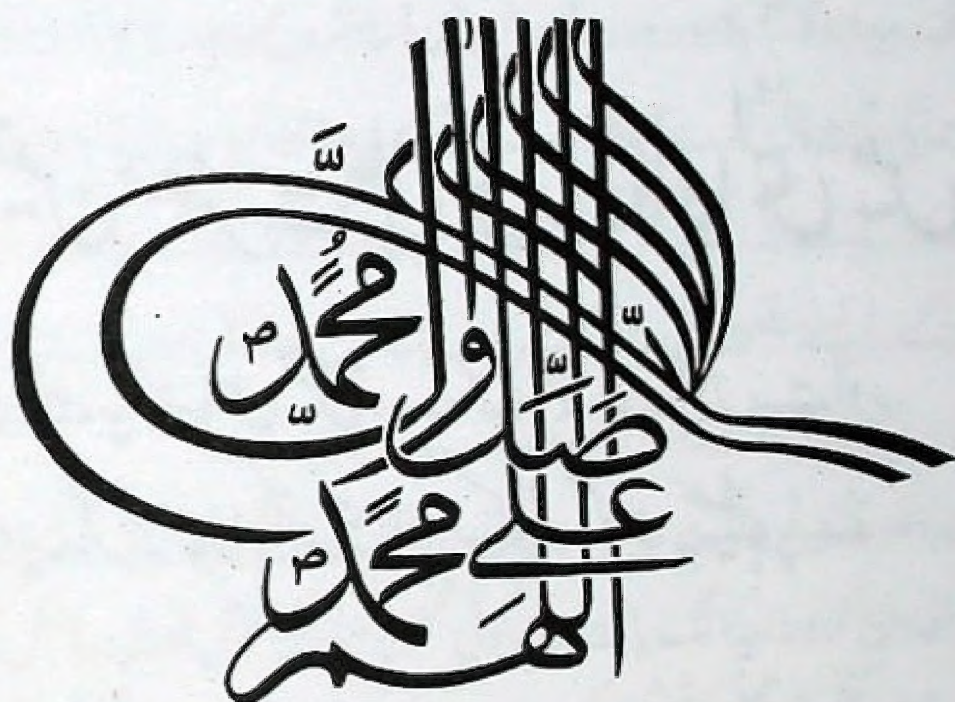 اللهم صَلِّ على محمد وال محمد